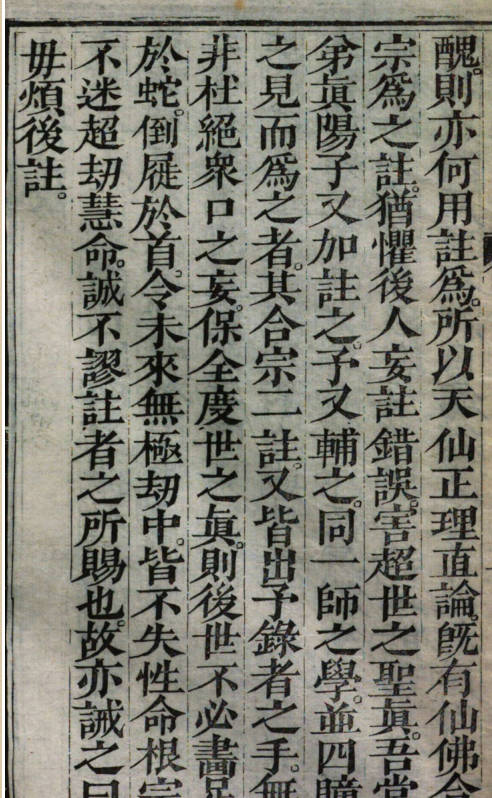 醜則亦何用註爲所以天仙正理直論旣有仙佛合
宗爲之註猶懼後人妄註錯誤害超世之聖眞吾堂
弟眞陽子又加註之予又輔之同一師之學並四瞳
之見而爲之者其合宗二註又皆出予錄者之手無
非杜絕衆口之妄保全度世之眞則後世不必畫足
於蛇倒屣於首令未來無極劫中皆不失性命根宗
不迷超劫慧命誠不謬註者之所賜也故亦誡之曰
毋煩後註